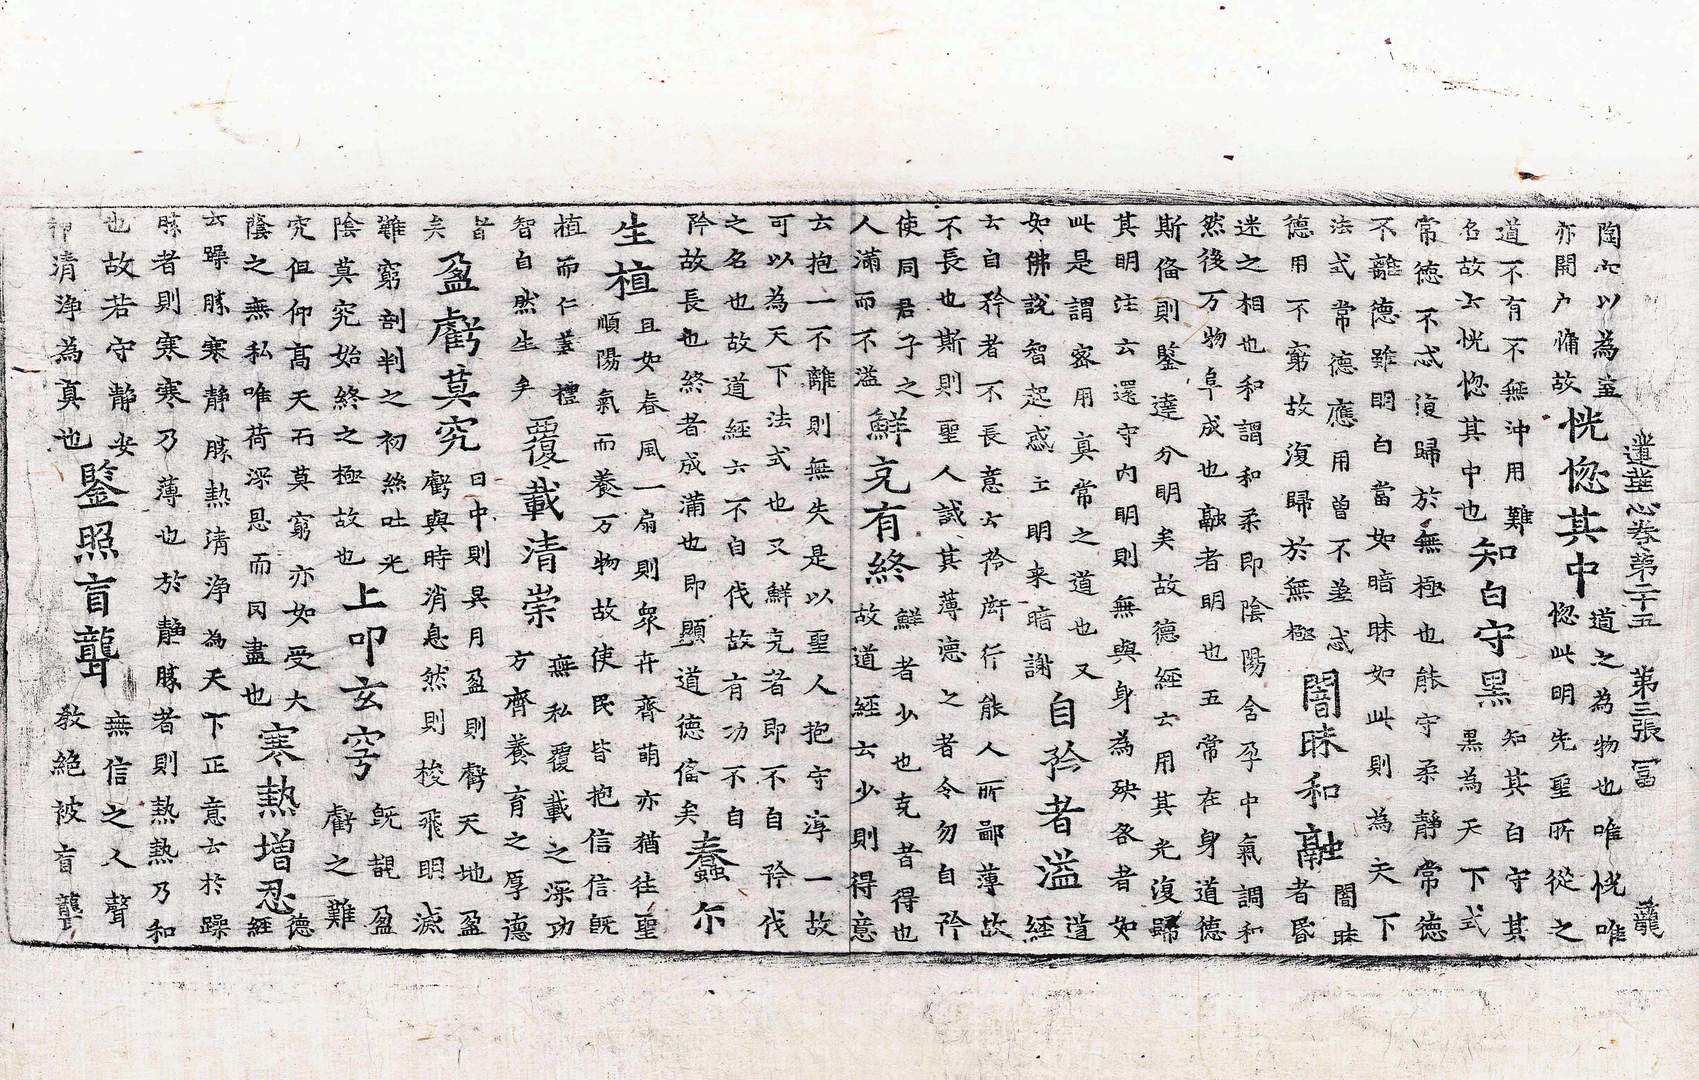 蓮華心卷第二十五 第三張 富 龍
陶六以為室
亦開户牖故
恍惚其中
道之為物也唯恍唯
惚此明先聖所從之
道不有不無沖用難
名故云恍惚其中也
知白守黑
知其白守其
黑為天下式
常德不忒復歸於無極也能守柔静常德
不離德雖明白當如暗昧如此則為天下
法式常德應用曾不差忒
德用不窮故復歸於無極
闇昧和融
闇昧
者昏
迷之相也和謂和柔即陰陽含孕中氣調和
然後万物阜成也融者明也五常在身道德
斯俻則鑒達分明矣故德經云用其光復歸
其明注云還守内明則無與身為殃咎者如
此是謂密用真常之道也又
如佛說智起惑亡明来暗謝
自矜者溢
道
經
云自矜者不長意云矜衒行能人所鄙薄故
不長也斯則聖人誡其薄德之者令勿自矜
使同君子之
人滿而不溢
鮮克有終
鮮者少也克者得也
故道經云少則得意
云抱一不離則無失是以聖人抱守淳一故
可以為天下法式也又鮮克者即不自矜伐
之名也故道經云不自伐故有功不自
矜故長也終者成滿也即顯道德俻矣
蠢尒
生植
且如春風一扇則衆卉齊萌亦猶往聖
順陽氣而養万物故使民皆抱信信既
植而仁義禮
智自然生矣
覆載清崇
無私覆載之深功
方齊養育之厚德
者
矣
盈虧莫究
日中則昃月盈則虧天地盈
虧與時消息然則梭飛明滅
難窮剖判之初絲吐光
陰莫究始終之極故也
上叩玄穹
既覩盈
虧之難
究但仰高天而莫窮亦如受大
蔭之無私唯荷深恩而罔盡也
寒熱增忍
德
經
云躁勝寒静勝熱清浄為天下正意云於躁
勝者則寒寒乃薄也於静勝者則熱熱乃和
也故若守静安
神清浄為真也
鑒照盲聾
無信之人聲
教絶被盲聾